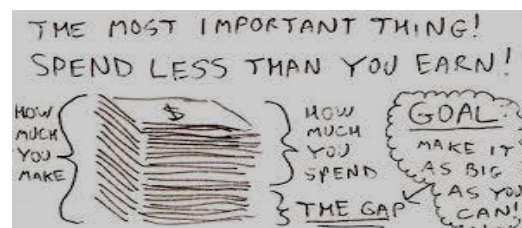 THE MOST IMPORTANT THING!
SPEND LESS THAN YOU EARN!
HOW
MUCH
YOU
MAKE
$
HOW
MUCH
YOU
SPEND
THE GAP
GOAL
MAKE IT
AS BIG
AS YOU
CAN!